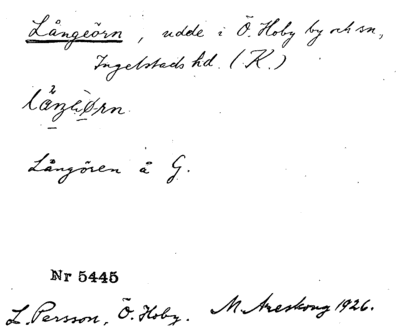 Långeörn, udde i Ö. Hoby by och sn,
Ingelstads hd. (K.)
Långören å G.
Nr 5445
L. Persson, Ö. Hoby. M. Areskoug 1926.